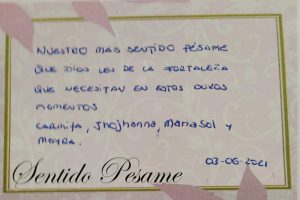 NUESTRO MAS SENTIDO PÉSAME
QUE DIOS LES DE LA FORTALEZA
QUE NECESITAN EN ESTOS DUROS
MOMENTOS
CARMITA, Jhojhanna, MARIASOL Y
MAYRA.
03-06-2021
Sentido Pésame